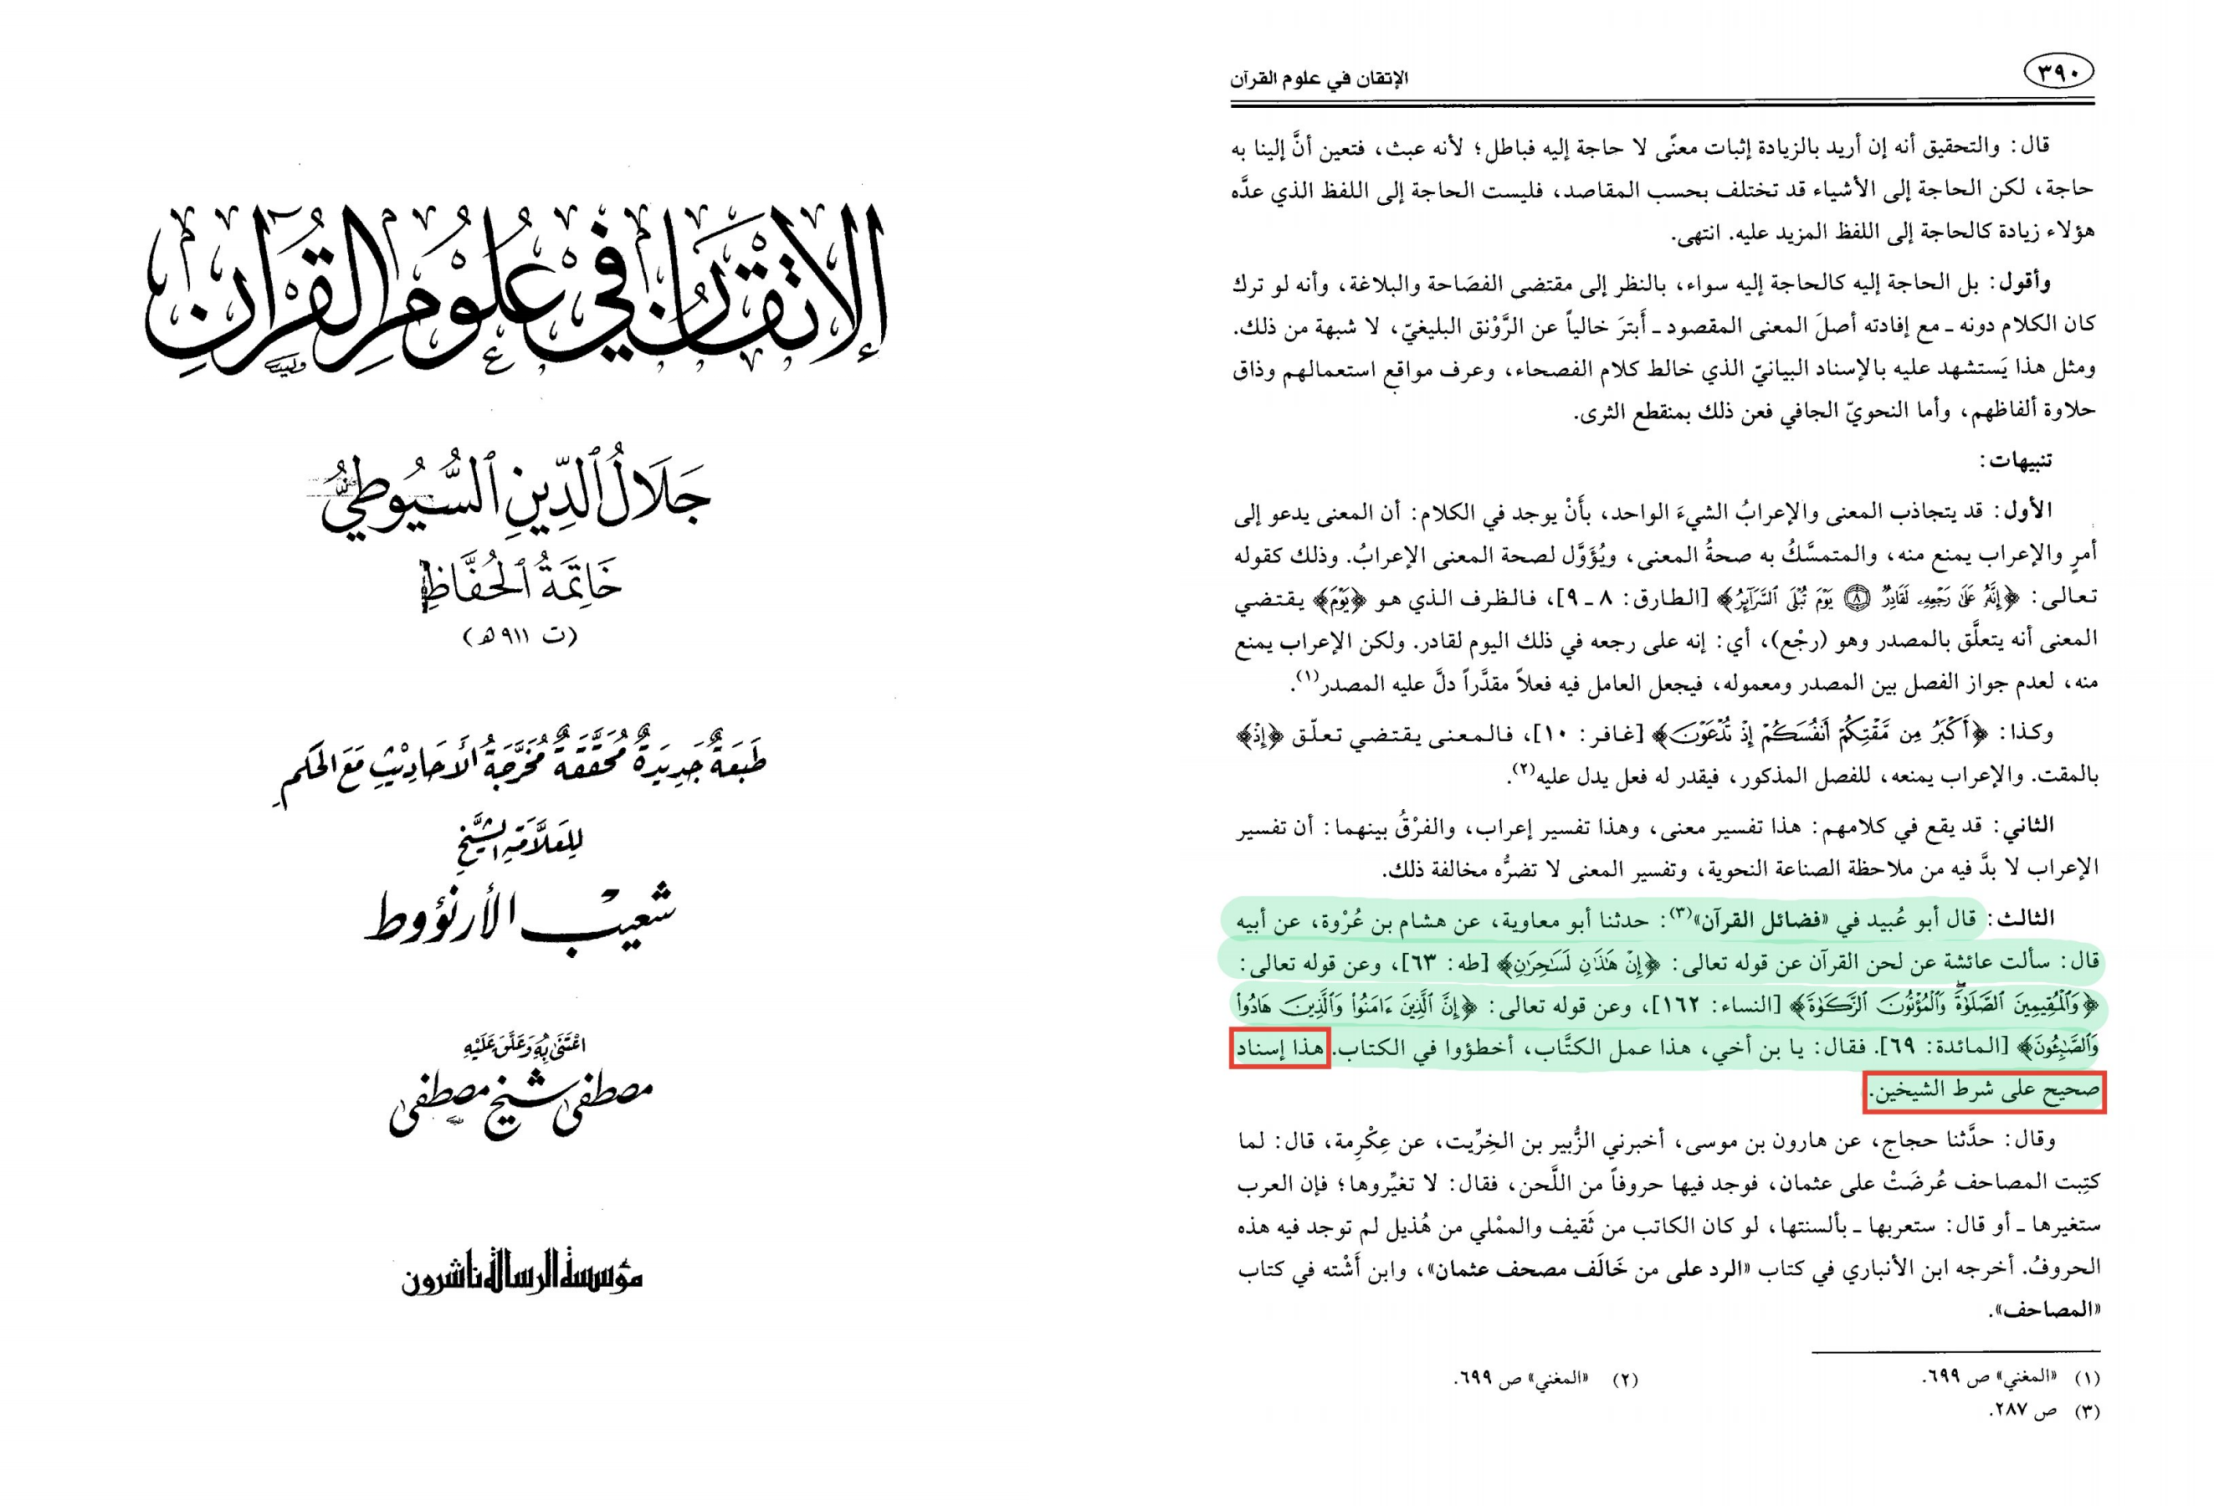 الإتقان في علوم القرآن
جلال الدين السيوطي
خاتمة الحفاظ
(ت ٩١١ هـ)
طبعة جديدة محققة مخرجة الأحاديث مع الحكم
للعلامة الشيخ
شعيب الأرنؤوط
اعتنى به وعلق عليه
مصطفى شيخ مصطفى
مؤسسة الرسالة ناشرون
٣٩٠
الإتقان في علوم القرآن
قال: والتحقيق أنه إن أريد بالزيادة إثبات معنًى لا حاجة إليه فباطل؛ لأنه عبث، فتعين أنَّ إلينا به
حاجة، لكن الحاجة إلى الأشياء قد تختلف بحسب المقاصد، فليست الحاجة إلى اللفظ الذي عدَّه
هؤلاء زيادة كالحاجة إلى اللفظ المزيد عليه. انتهى.
وأقول: بل الحاجة إليه كالحاجة إليه سواء، بالنظر إلى مقتضى الفصَاحة والبلاغة، وأنه لو ترك
كان الكلام دونه ـ مع إفادته أصلَ المعنى المقصود ـ أَبترَ خالياً عن الرَّوْنق البليغيّ، لا شبهة من ذلك.
ومثل هذا يَستشهد عليه بالإسناد البيانيّ الذي خالط كلام الفصحاء، وعرف مواقع استعمالهم وذاق
حلاوة ألفاظهم، وأما النحويّ الجافي فعن ذلك بمنقطع الثرى.
تنبيهات:
الأول: قد يتجاذب المعنى والإعرابُ الشيءَ الواحد، بأَنْ يوجد في الكلام: أن المعنى يدعو إلى
أمرٍ والإعراب يمنع منه، والمتمسَّكُ به صحةُ المعنى، ويُؤَوَّل لصحة المعنى الإعرابُ. وذلك كقوله
تعالى: ﴿إِنَّهُ عَلَىٰ رَجْعِهِۦ لَقَادِرٌ ۝٨ يَوْمَ تُبْلَى ٱلسَّرَآئِرُ﴾ [الطارق: ٨ ـ ٩]، فالظرف الذي هو ﴿يَوْمَ﴾ يقتضي
المعنى أنه يتعلَّق بالمصدر وهو (رجْع)، أي: إنه على رجعه في ذلك اليوم لقادر. ولكن الإعراب يمنع
منه، لعدم جواز الفصل بين المصدر ومعموله، فيجعل العامل فيه فعلاً مقدَّراً دلَّ عليه المصدر(١).
وكذا: ﴿أَكْبَرُ مِن مَّقْتِكُمْ أَنفُسَكُمْ إِذْ تُدْعَوْنَ﴾ [غافر: ١٠]، فالمعنى يقتضي تعلّق ﴿إِذْ﴾
بالمقت. والإعراب يمنعه، للفصل المذكور، فيقدر له فعل يدل عليه(٢).
الثاني: قد يقع في كلامهم: هذا تفسير معنى، وهذا تفسير إعراب، والفرْقُ بينهما: أن تفسير
الإعراب لا بدَّ فيه من ملاحظة الصناعة النحوية، وتفسير المعنى لا تضرُّه مخالفة ذلك.
الثالث: قال أبو عُبيد في «فضائل القرآن»(٣): حدثنا أبو معاوية، عن هشام بن عُرْوة، عن أبيه
قال: سألت عائشة عن لحن القرآن عن قوله تعالى: ﴿إِنْ هَٰذَٰنِ لَسَٰحِرَٰنِ﴾ [طه: ٦٣]، وعن قوله تعالى:
﴿وَٱلْمُقِيمِينَ ٱلصَّلَوٰةَ وَٱلْمُؤْتُونَ ٱلزَّكَوٰةَ﴾ [النساء: ١٦٢]، وعن قوله تعالى: ﴿إِنَّ ٱلَّذِينَ ءَامَنُوا۟ وَٱلَّذِينَ هَادُوا۟
وَٱلصَّٰبِـُٔونَ﴾ [المائدة: ٦٩]. فقال: يا بن أخي، هذا عمل الكتَّاب، أخطؤوا في الكتاب. هذا إسناد
صحيح على شرط الشيخين.
وقال: حدَّثنا حجاج، عن هارون بن موسى، أخبرني الزُّبير بن الخِرِّيت، عن عِكْرِمة، قال: لما
كتِبت المصاحف عُرضَتْ على عثمان، فوجد فيها حروفاً من اللَّحن، فقال: لا تغيِّروها؛ فإن العرب
ستغيرها ـ أو قال: ستعربها ـ بألسنتها، لو كان الكاتب من ثَقيف والممْلي من هُذيل لم توجد فيه هذه
الحروفُ. أخرجه ابن الأنباري في كتاب «الرد على من خَالَف مصحف عثمان»، وابن أَشْته في كتاب
«المصاحف».
(١) «المغني» ص ٦٩٩.
(٢) «المغني» ص ٦٩٩.
(٣) ص ٢٨٧.